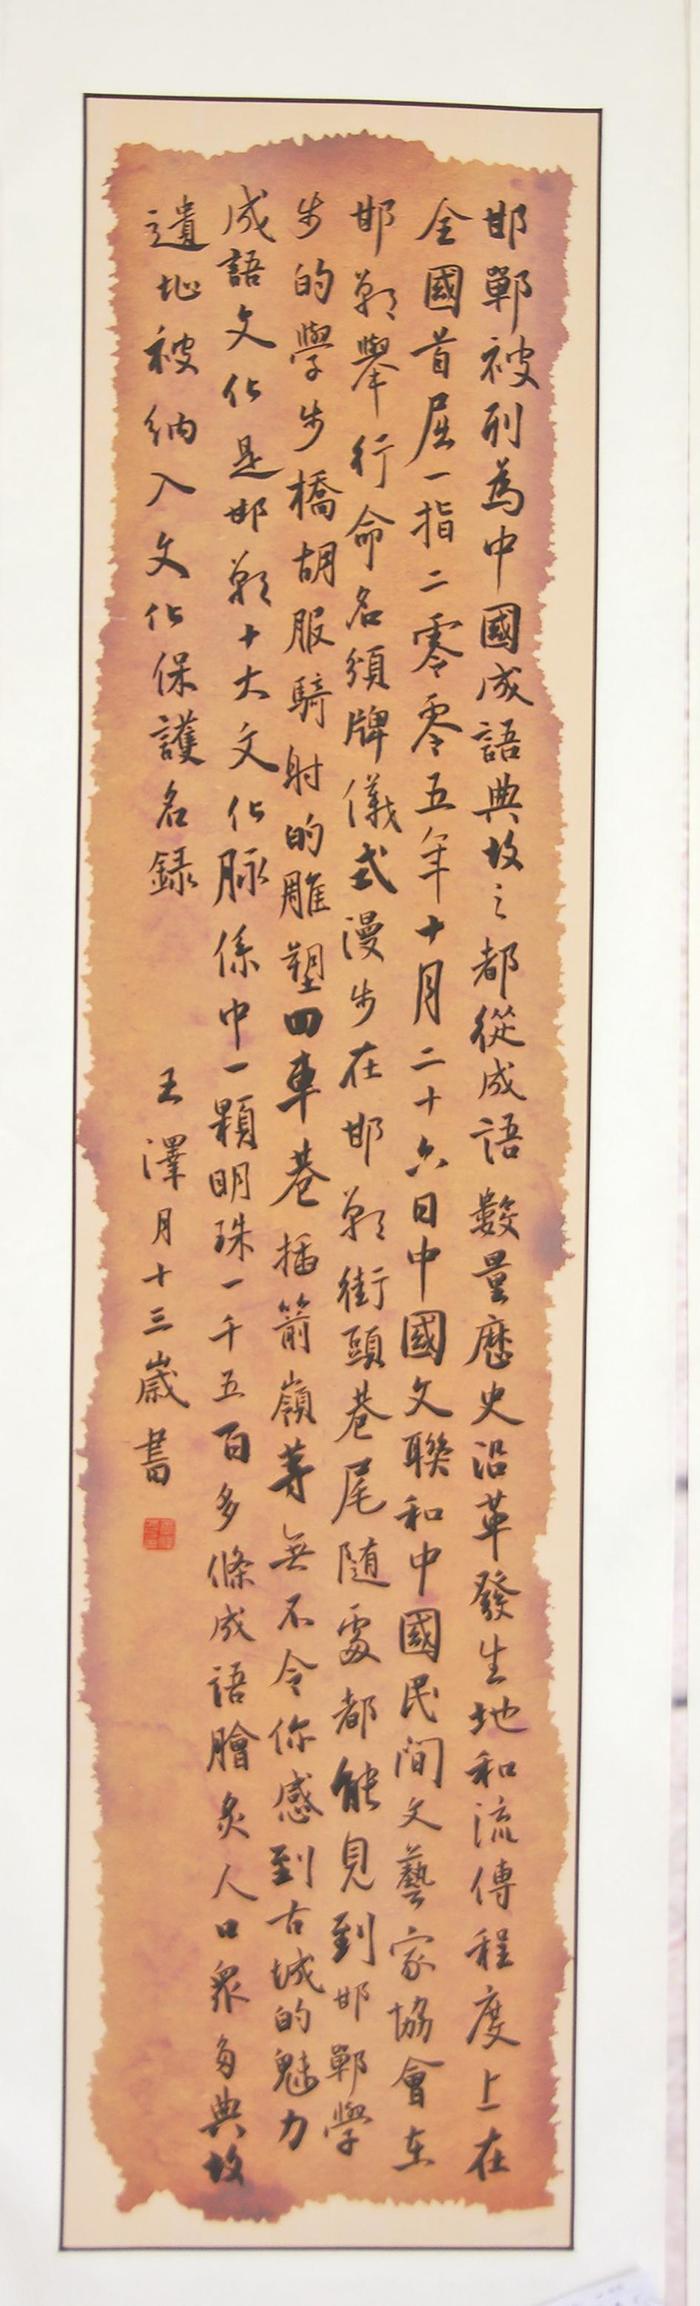 邯鄲被列為中國成語典故之都從成語數量歷史沿革發生地和流傳程度上在
全國首屈一指二零零五年十月二十六日中國文聯和中國民間文藝家協會在
邯鄲舉行命名頒牌儀式漫步在邯鄲街頭巷尾隨處都能見到邯鄲學
步的學步橋胡服騎射的雕塑回車巷插箭嶺等無不令你感到古城的魅力
成語文化是邯鄲十大文化脈係中一顆明珠一千五百多條成語膾炙人口眾多典故
遺址被納入文化保護名録
王澤月十三歲書